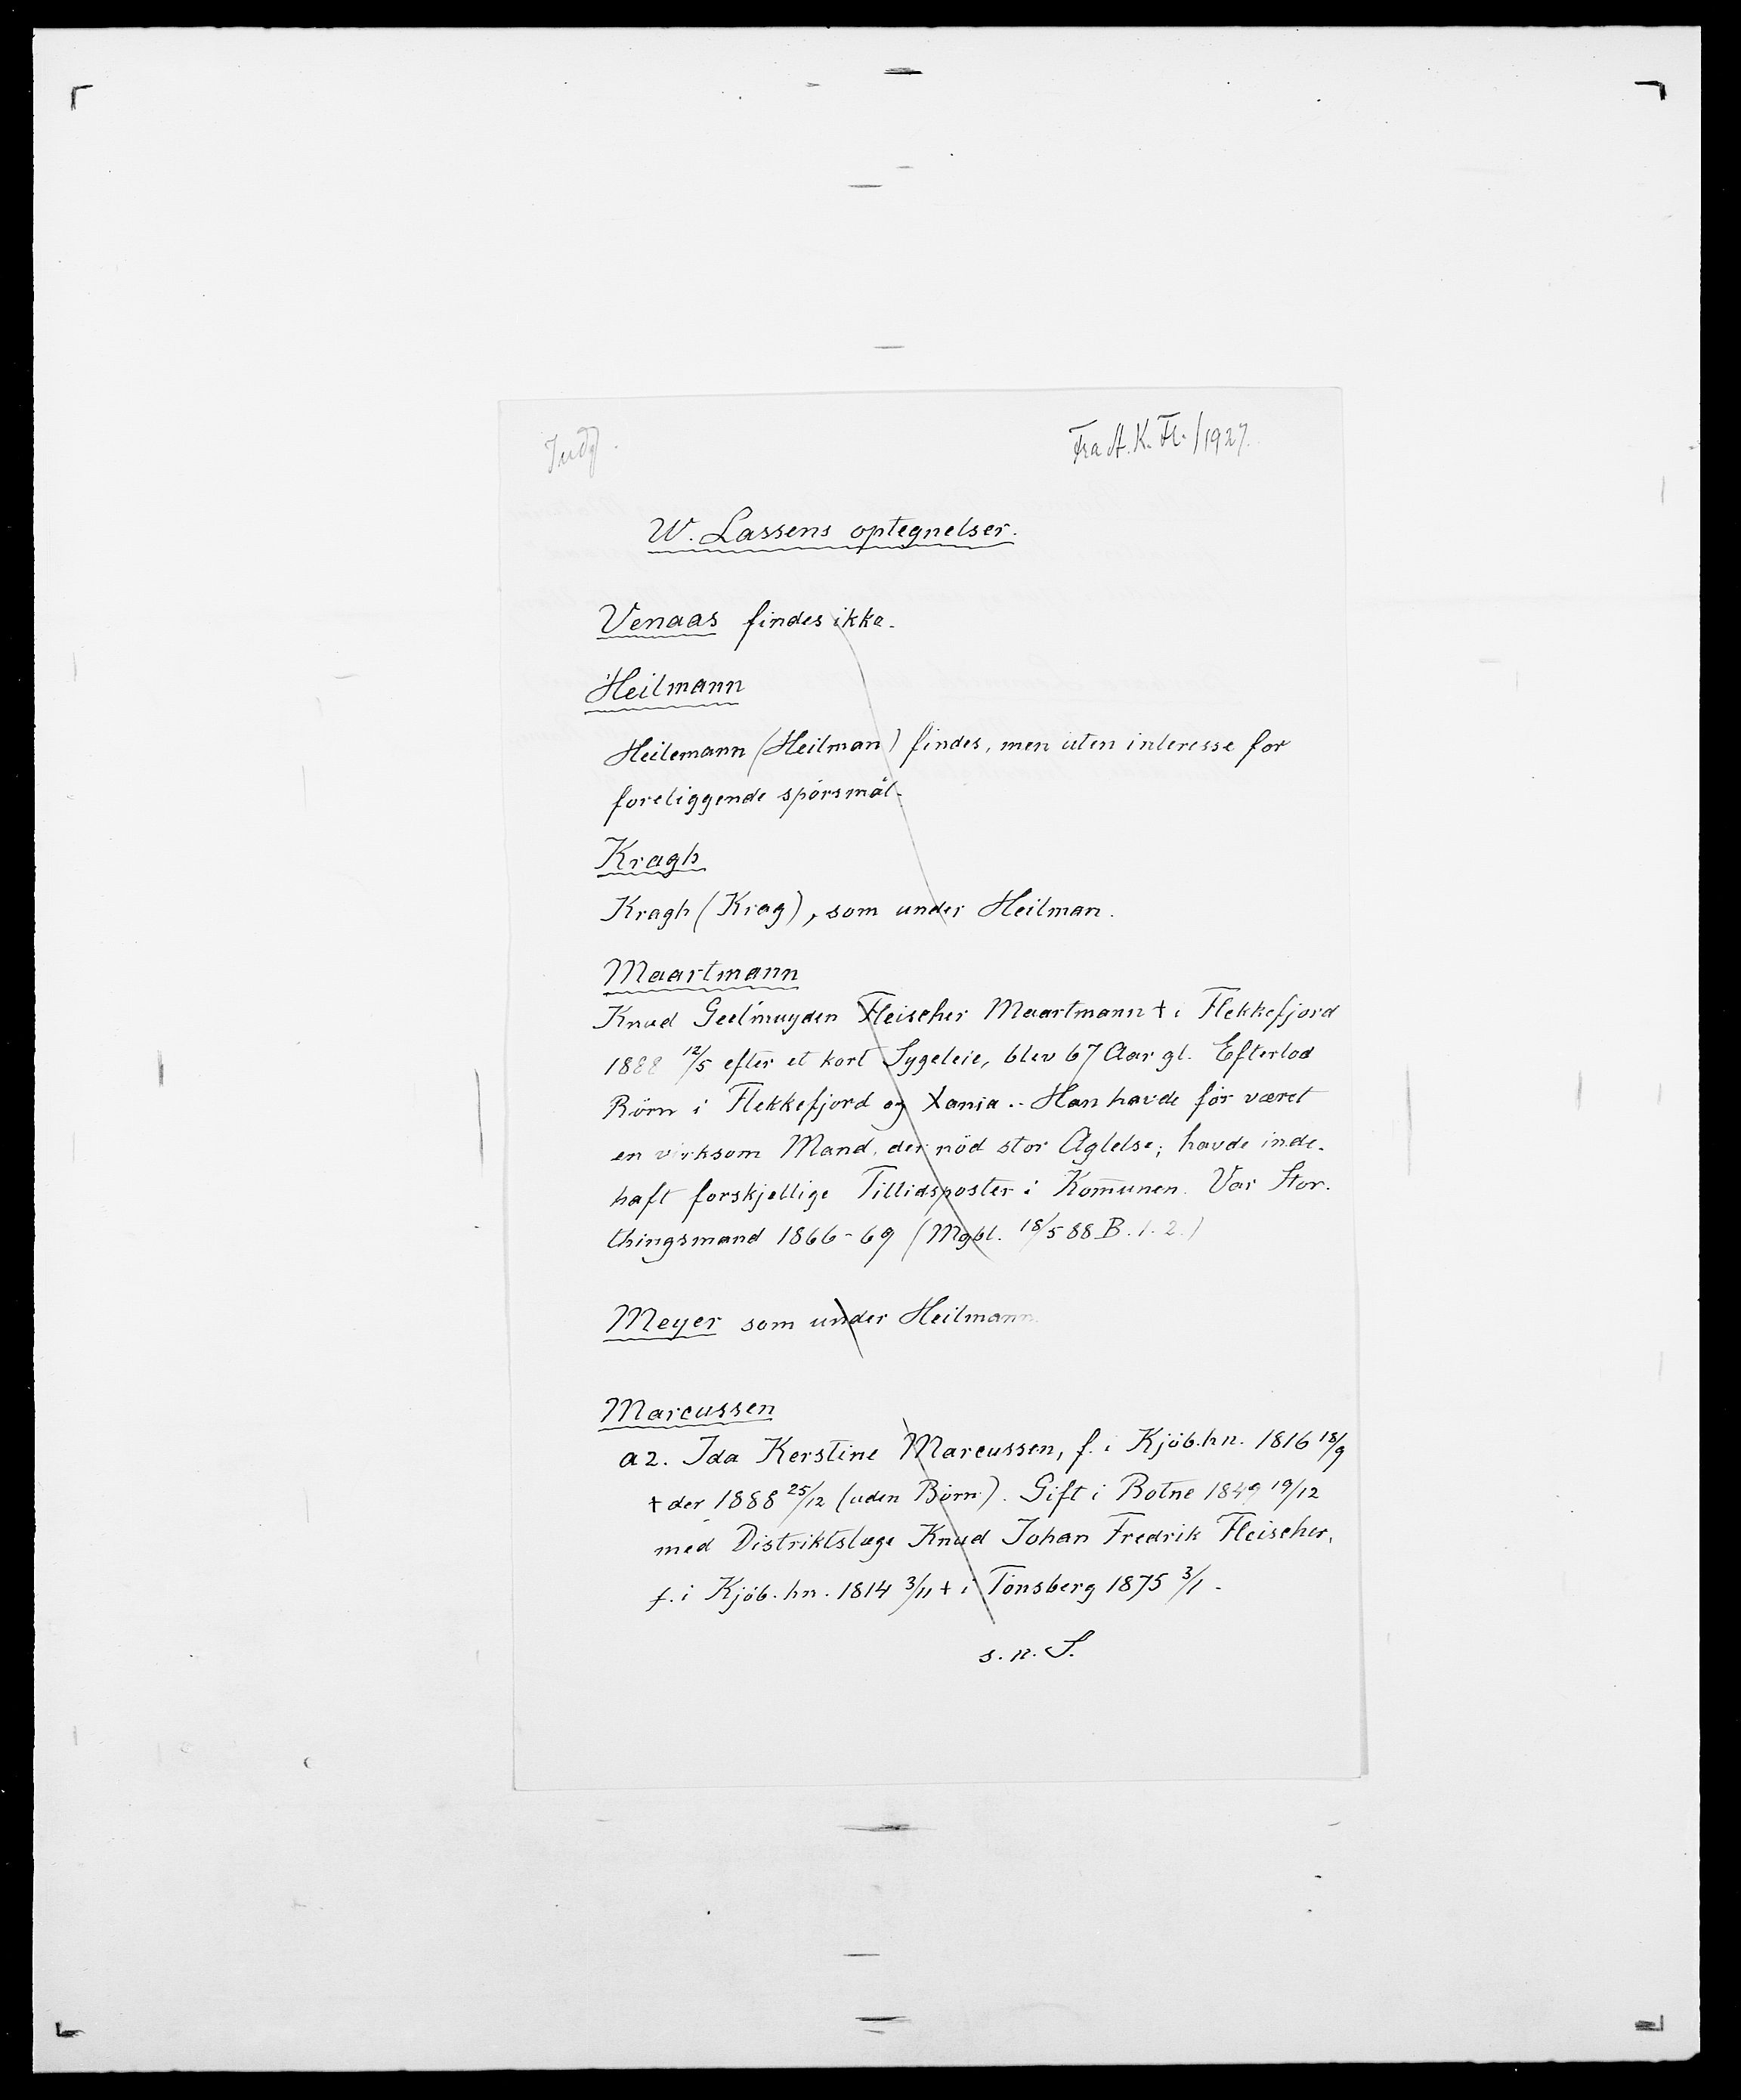 Fra A. K. Fl. / 1927.
W. Lassens optegnelser.
Venaas findes ikke.
Heilmann
Heilemann (Heilman) findes, men uten interesse for
foreliggende spörsmål.
Kragh
Kragh (Krag), som under Heilman.
Maartmann
Knud Geelmuyden Fleischer Maartmann † i Flekkefjord
1888 12/5 efter et kort Sygeleie, blev 67 Aar gl. Efterlod
Börn i Flekkefjord og Xania. - Han havde för været
en virksom Mand, der nöd stor Agtelse; havde inde-
haft forskjellige Tillidsposter i Kom̄unen. Var Stor-
thingsmand 1866-69 (Mgbl. 18/5 88 B. 1. 2.)
Meyer som under Heilmann
Marcussen
a 2. Ida Kerstine Marcussen, f. i Kjöb.hn. 1816 18/9
† der 1888 25/12 (uden Börn). Gift i Botne 1849 19/12
med Distriktslæge Knud Johan Fredrik Fleischer,
f. i Kjöb.hn. 1814 3/11 † i Tönsberg 1875 3/1.
s. n. S.